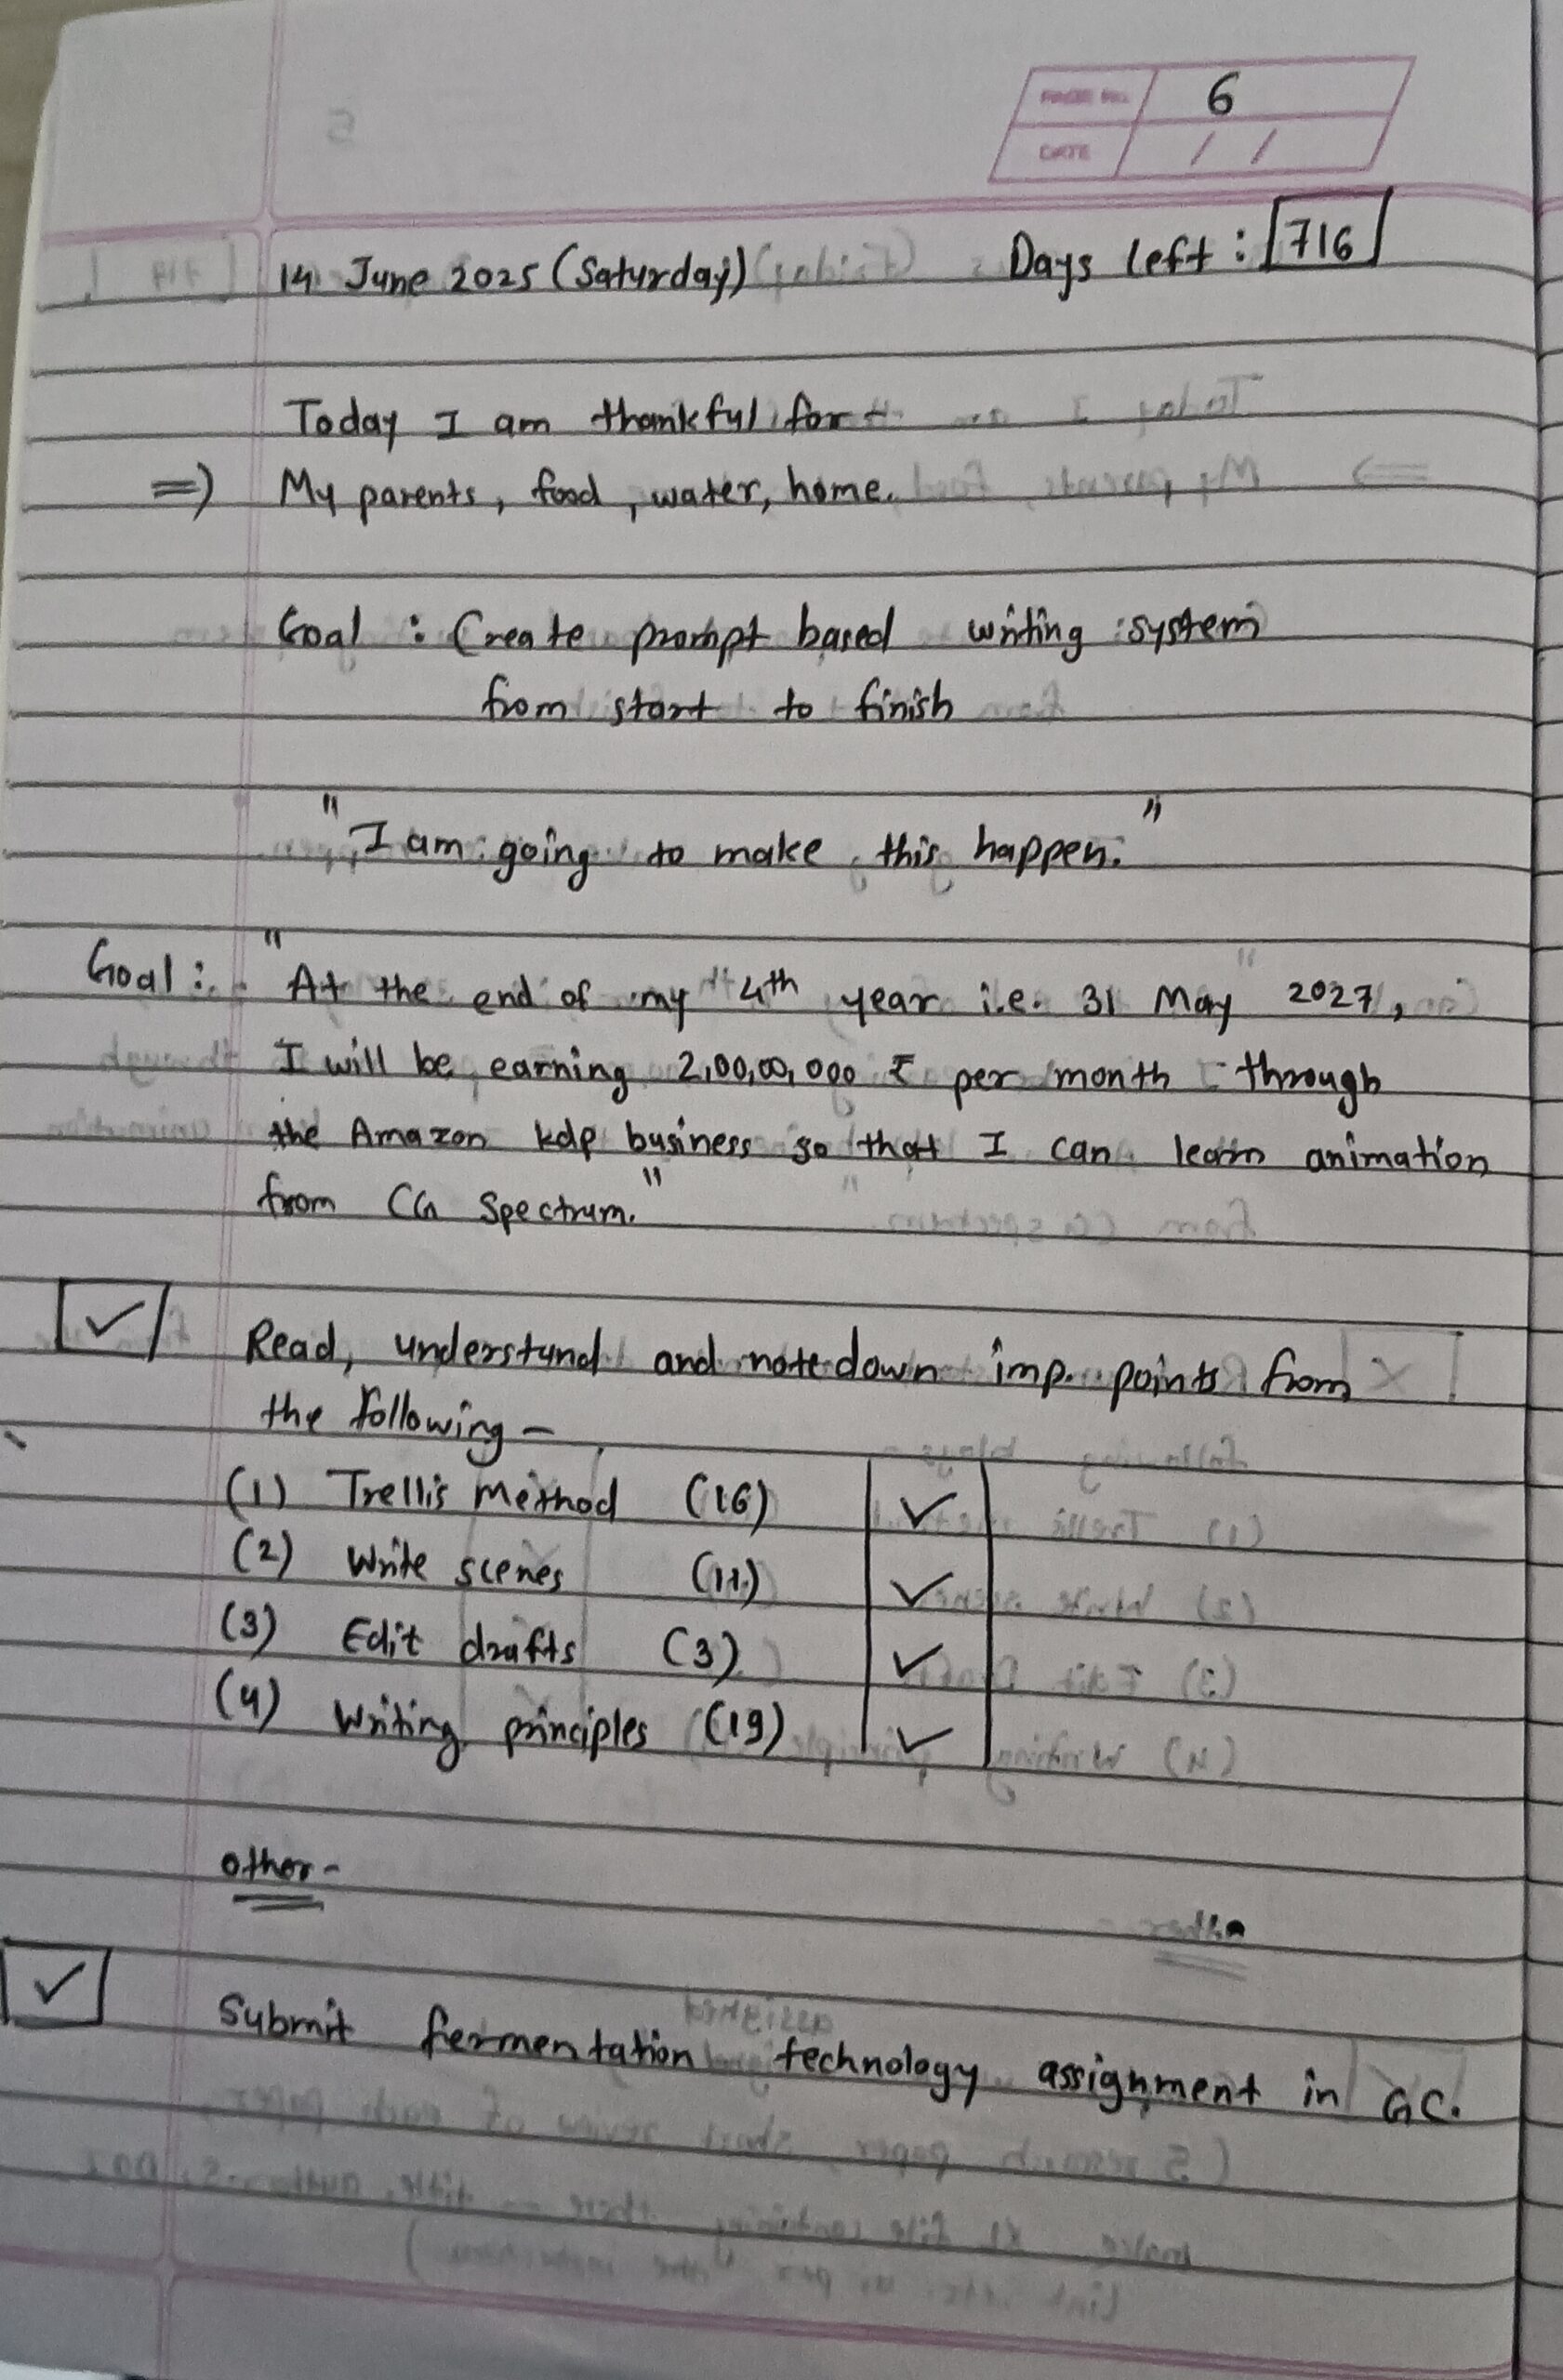 PAGE NO. 6
DATE / /
14 June 2025 (Saturday) Days left : 716
Today I am thankful for -
=) My parents, food, water, home.
Goal : Create prompt based writing system
from start to finish
"I am going to make this happen."
Goal : "At the end of my 4th year i.e. 31 May 2027,
I will be earning 2,00,00,000 ₹ per month through
the Amazon kdp business so that I can learn animation
from CG Spectrum."
✓ Read, understand and note down imp. points from
the following -
(1) Trellis Method (16) ✓
(2) Write scenes (11) ✓
(3) Edit drafts (3) ✓
(4) Writing principles (19) ✓
Other -
✓ Submit fermentation technology assignment in GC.